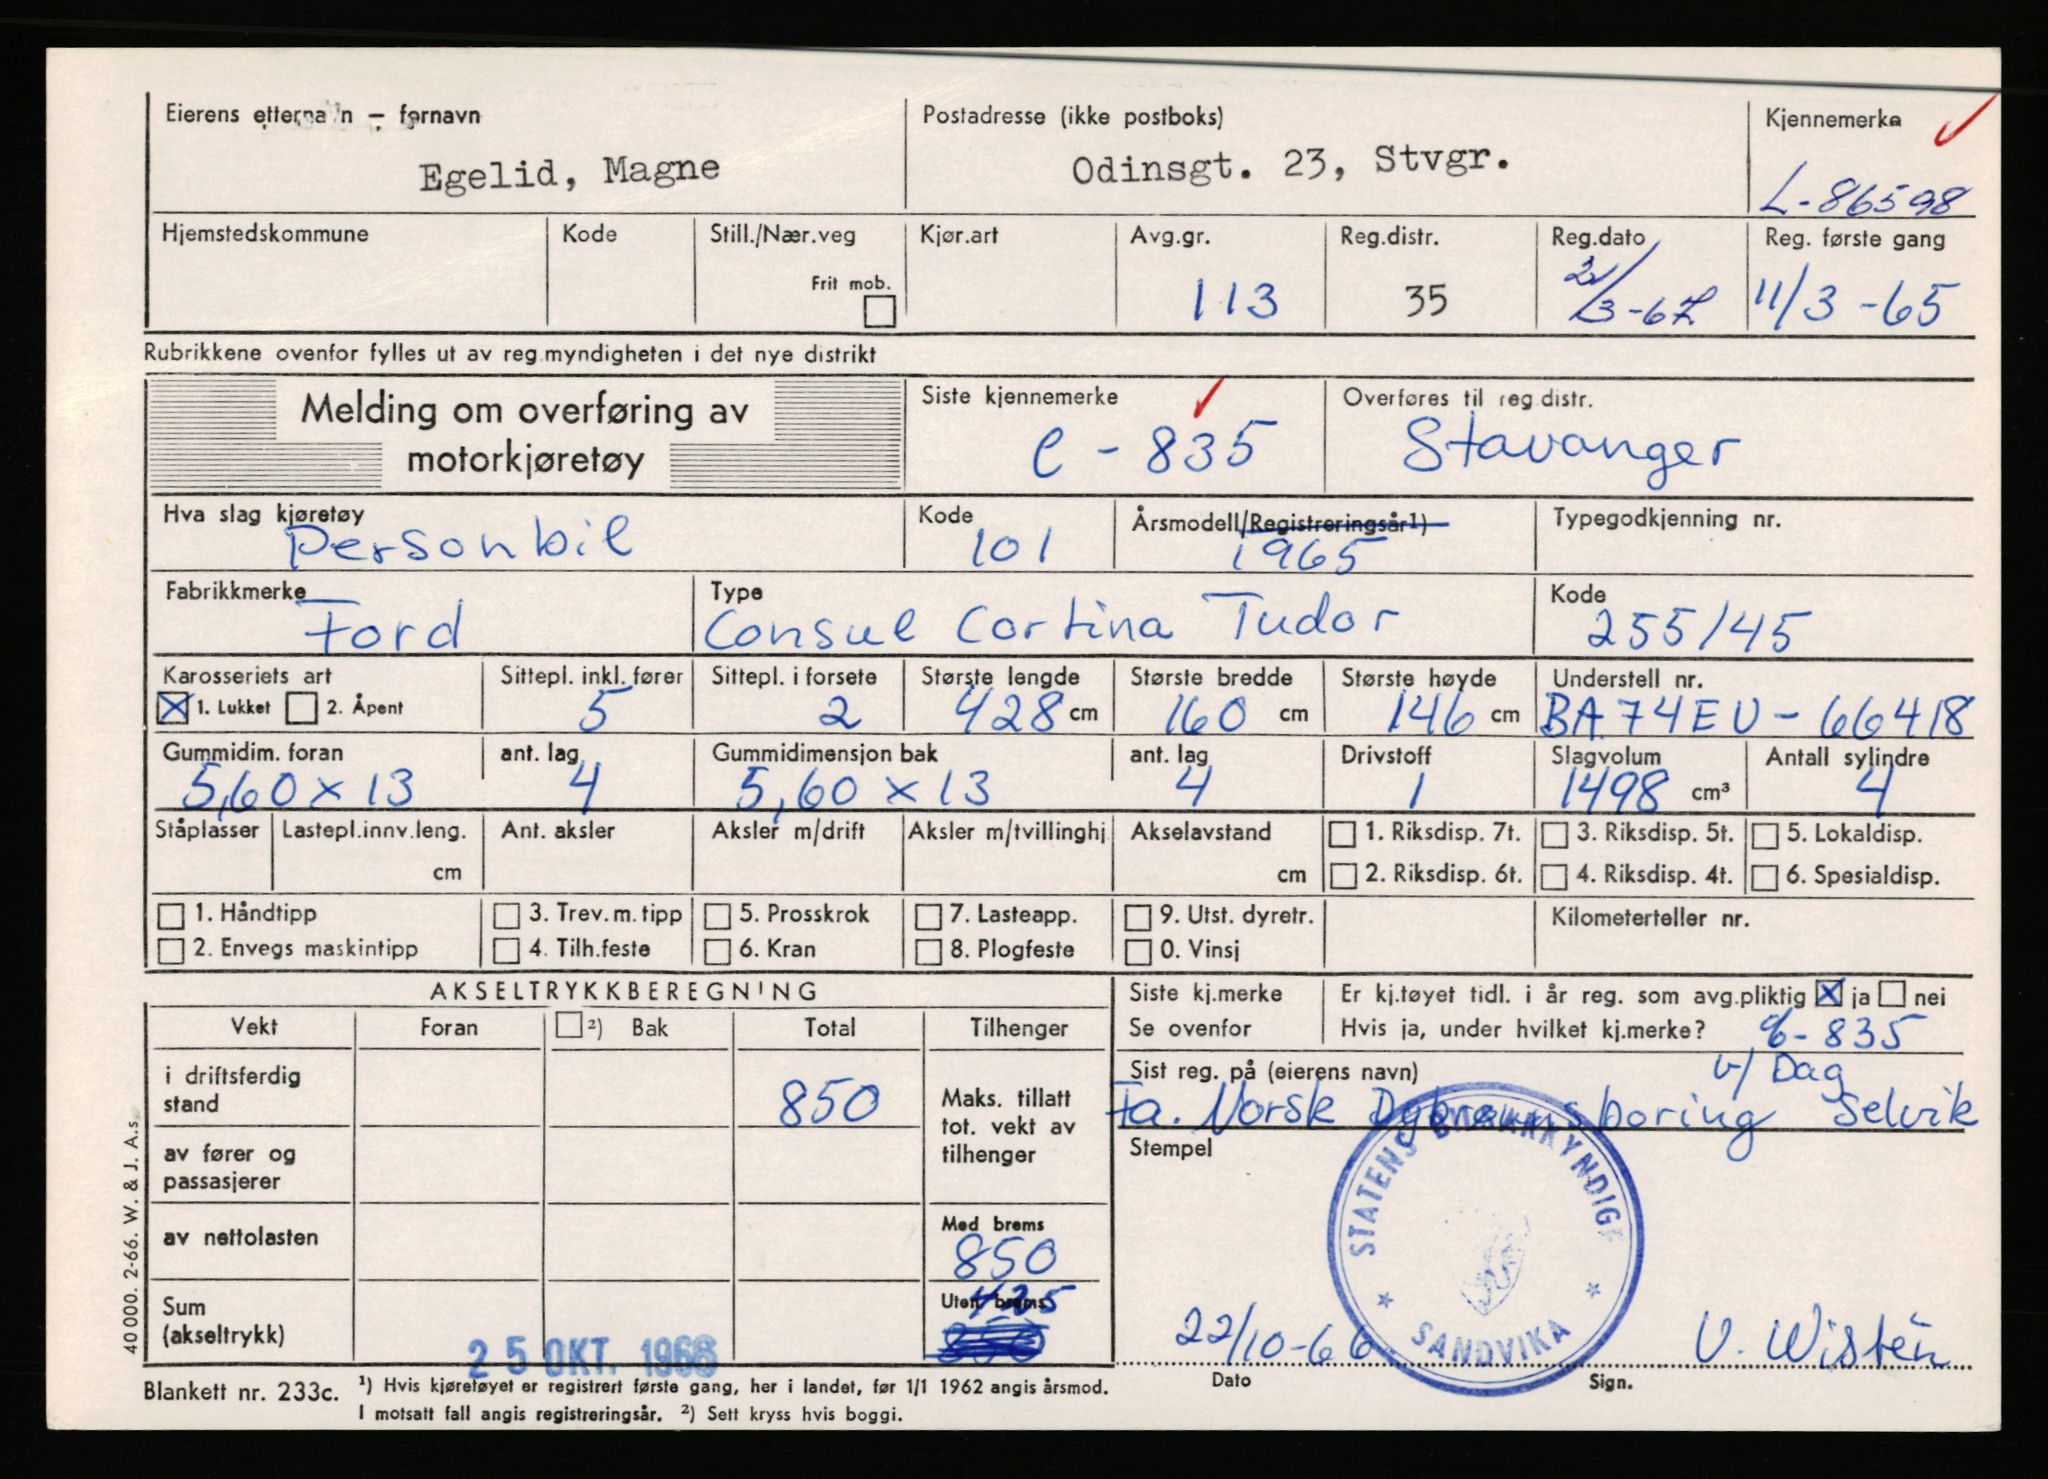 Eierens etternavn — fornavn
Egelid, Magne
Postadresse (ikke postboks)
Odinsgt. 23, Stvgr.
Kjennemerke
L-86598
Hjemstedskommune
Kode
Still./Nær.veg
Frit mob.
Kjør.art
Avg.gr.
113
Reg.distr.
35
Reg.dato
2/3-67
Reg. første gang
11/3-65
Rubrikkene ovenfor fylles ut av reg.myndigheten i det nye distrikt
Melding om overføring av
motorkjøretøy
Siste kjennemerke
C-835
Overføres til reg.distr.
Stavanger
Hva slag kjøretøy
Personbil
Kode
101
Årsmodell/Registreringsår1)
1965
Typegodkjenning nr.
Fabrikkmerke
Ford
Type
Consul Cortina Tudor
Kode
255/45
Karosseriets art
1. Lukket 2. Åpent
Sittepl. inkl. fører
5
Sittepl. i forsete
2
Største lengde
428 cm
Største bredde
160 cm
Største høyde
146 cm
Understell nr.
BA74EU-66418
Gummidim. foran
5,60 x 13
ant. lag
4
Gummidimensjon bak
5,60 x 13
ant. lag
4
Drivstoff
1
Slagvolum
1498 cm³
Antall sylindre
4
Ståplasser
Lastepl.innv.leng.
cm
Ant. aksler
Aksler m/drift
Aksler m/tvillinghj
Akselavstand
cm
1. Riksdisp. 7t. 3. Riksdisp. 5t. 5. Lokaldisp.
2. Riksdisp. 6t. 4. Riksdisp. 4t. 6. Spesialdisp.
1. Håndtipp 3. Trev. m. tipp 5. Prosskrok 7. Lasteapp. 9. Utst. dyretr.
2. Envegs maskintipp 4. Tilh.feste 6. Kran 8. Plogfeste 0. Vinsj
Kilometerteller nr.
AKSELTRYKKBEREGNING
Vekt Foran 2) Bak Total Tilhenger
i driftsferdig
stand
850
Maks. tillatt
tot. vekt av
tilhenger
av fører og
passasjerer
av nettolasten
Med brems
850
Sum
(akseltrykk)
Uten brems
425
25 OKT. 1966
Siste kj.merke
Se ovenfor
Er kj.tøyet tidl. i år reg. som avg.pliktig ja nei
Hvis ja, under hvilket kj.merke?
C-835
Sist reg. på (eierens navn)
v/ Dag
Fa. Norsk Dybvannsboring Selvik
Stempel
STATENS BILSAKKYNDIGE
* SANDVIKA *
22/10-66
V. Wistèn
Dato
Sign.
40 000. 2-66. W. & J. A.s.
Blankett nr. 233c.
1) Hvis kjøretøyet er registrert første gang, her i landet, før 1/1 1962 angis årsmod.
I motsatt fall angis registreringsår. 2) Sett kryss hvis boggi.